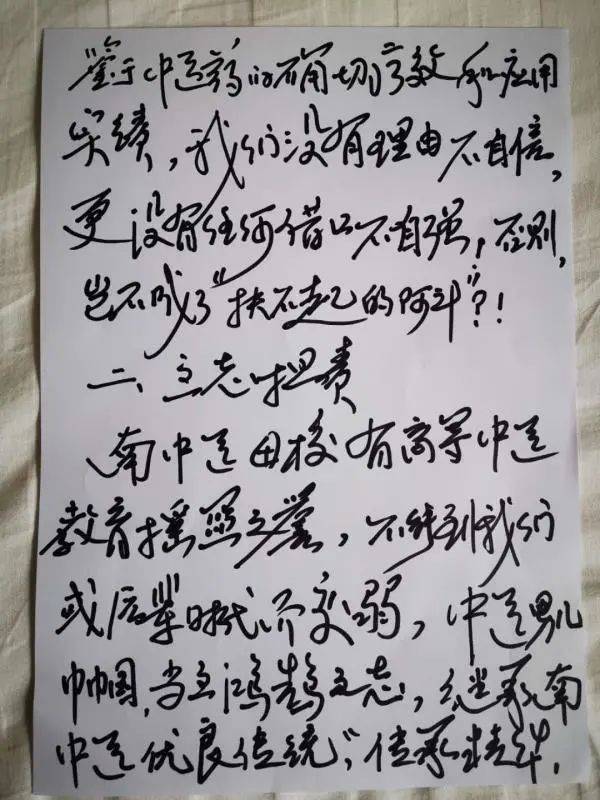 鉴于中医药的确切疗效和应用
实绩,我们没有理由不自信,
更没有任何借口不自强,否则,
岂不成了“扶不起的阿斗”?!
二、立志担责
南中医母校有高等中医
教育摇篮之誉,不能到我们
或后辈时代而变弱,中医男儿
巾帼,当立鸿鹄之志,继承南
中医优良传统,传承精华,